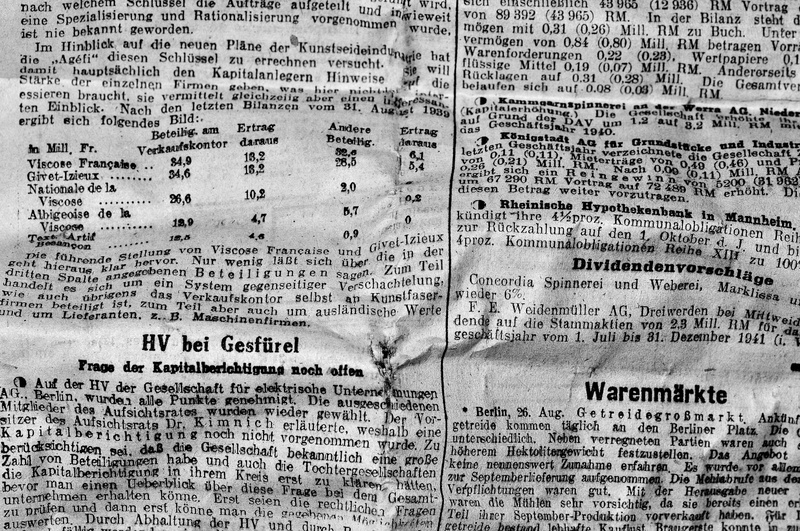 nach welchem Schlüssel die Aufträge aufgeteilt und inwieweit
eine Spezialisierung und Rationalisierung vorgenommen wurde,
ist nie bekannt geworden.
Im Hinblick auf die neuen Pläne der Kunstseideindustrie hat
die „Agéfi" diesen Schlüssel zu errechnen versucht. Sie will
damit hauptsächlich den Kapitalanlegern Hinweise auf die
Stärke der einzelnen Firmen geben, was hier nicht
essieren braucht, sie vermittelt gleichzeitig aber einen interessan-
ten Einblick. Nach den letzten Bilanzen vom 31. August 1939
ergibt sich folgendes Bild:
Beteilig. am Ertrag Andere Ertrag
in Mill. Fr. Verkaufskontor daraus Beteilig. daraus
Viscose Française 34,9 18,2 32,6 6,1
Givet-Izieux 34,6 18,2 28,5 5,4
Nationale de la
Viscose 26,6 10,2 2,0 0,2
Albigeoise de la
Viscose 12,9 4,7 5,7 0
Text. Artif.
Besançon 12,5 4,6 0,9 0
Die führende Stellung von Viscose Française und Givet-Izieux
geht hieraus klar hervor. Nur wenig läßt sich über die in der
dritten Spalte angegebenen Beteiligungen sagen. Zum Teil
handelt es sich um ein System gegenseitiger Verschachtelung,
wie auch übrigens das Verkaufskontor selbst an Kunstfaser-
firmen beteiligt ist, zum Teil aber auch um ausländische Werte
und um Lieferanten, z. B. Maschinenfirmen.
HV bei Gesfürel
Frage der Kapitalberichtigung noch offen
Auf der HV der Gesellschaft für elektrische Unternehmungen
AG., Berlin, wurden alle Punkte genehmigt. Die ausgeschiedenen
Mitglieder des Aufsichtsrates wurden wieder gewählt. Der Vor-
sitzer des Aufsichtsrats Dr. Kimmich erläuterte, weshalb eine
Kapitalberichtigung noch nicht vorgenommen wurde. Zu
berücksichtigen sei, daß die Gesellschaft bekanntlich eine große
Zahl von Beteiligungen habe und auch die Tochtergesellschaften
die Kapitalberichtigung in ihrem Kreis erst zu klären hätten,
bevor man einen Ueberblick über diese Frage bei dem Gesamt-
unternehmen erhalten könne. Erst seien die rechtlichen Fragen
zu prüfen und dann erst könne man die gegebenen Möglichkeiten
auswerten. Durch Abhaltung der HV und durch
sich einschließlich 43 965 (12 936) RM Vortrag
von 89 392 (43 965) RM. In der Bilanz steht
mögen mit 0,31 (0,26) Mill. RM zu Buch. Unter
vermögen von 0,84 (0,80) Mill. RM betragen Vorra
Warenforderungen 0,22 (0,28), Wertpapiere 0,1
flüssige Mittel 0,19 (0,07) Mill. RM. Andererseits
Rücklagen auf 0,31 (0,28) Mill. RM. Die Gesamtver
belaufen sich auf 0,08 (0,03) Mill. RM
Kammgarnspinnerei an der Werra AG, Nieder
(Kapitalerhöhung.) Die Gesellschaft erhöhte
auf Grund der DAV um 1,2 auf 3,2 Mill. RM
das Geschäftsjahr 1940.
Königstadt AG für Grundstücke und Industri
letzten Geschäftsjahr verzeichnete die Gesellschaft
von 0,11 (0,11), Mieterträge von 0,49 (0,46) und
0,26 (0,21) Mill. RM. Nach 0,09 (0,11) Mill. RM
ergibt sich ein Reingewinn von 5200 (31 962)
um 67 290 RM Vortrag auf 72 489 RM erhöht. Die
diesen Betrag weiter vorzutragen.
Rheinische Hypothekenbank in Mannheim.
kündigt ihre 4½proz. Kommunalobligationen Reihe
zur Rückzahlung auf den 1. Oktober d. J. und bi
4proz. Kommunalobligationen Reihe XIII zu 100%
Dividendenvorschläge
Concordia Spinnerei und Weberei, Marklissa
wieder 6%.
F. E. Weidenmüller AG, Dreiwerden bei Mittweid
dende auf die Stammaktien von 2,3 Mill. RM für da
geschäftsjahr vom 1. Juli bis 31. Dezember 1941 (i. V
Warenmärkte
* Berlin, 26. Aug. Getreidegroßmarkt. Ankünf
getreide kommen täglich an den Berliner Platz. Die
unterschiedlich. Neben verregneten Partien waren auch
höherem Hektolitergewicht festzustellen. Das Angebot
keine nennenswert Zunahme erfahren. Es wurde vor allem
zur Septemberlieferung aufgenommen. Die Mehlabrufe aus de
Verpflichtungen waren gut. Mit der Herausgabe neuer
waren die Mühlen sehr vorsichtig, da sie bereits einen er
Teil ihrer September-Produktion vorverkauft haben. Für
getreide bestand lebhafte Kauflust. Braugerste konnte